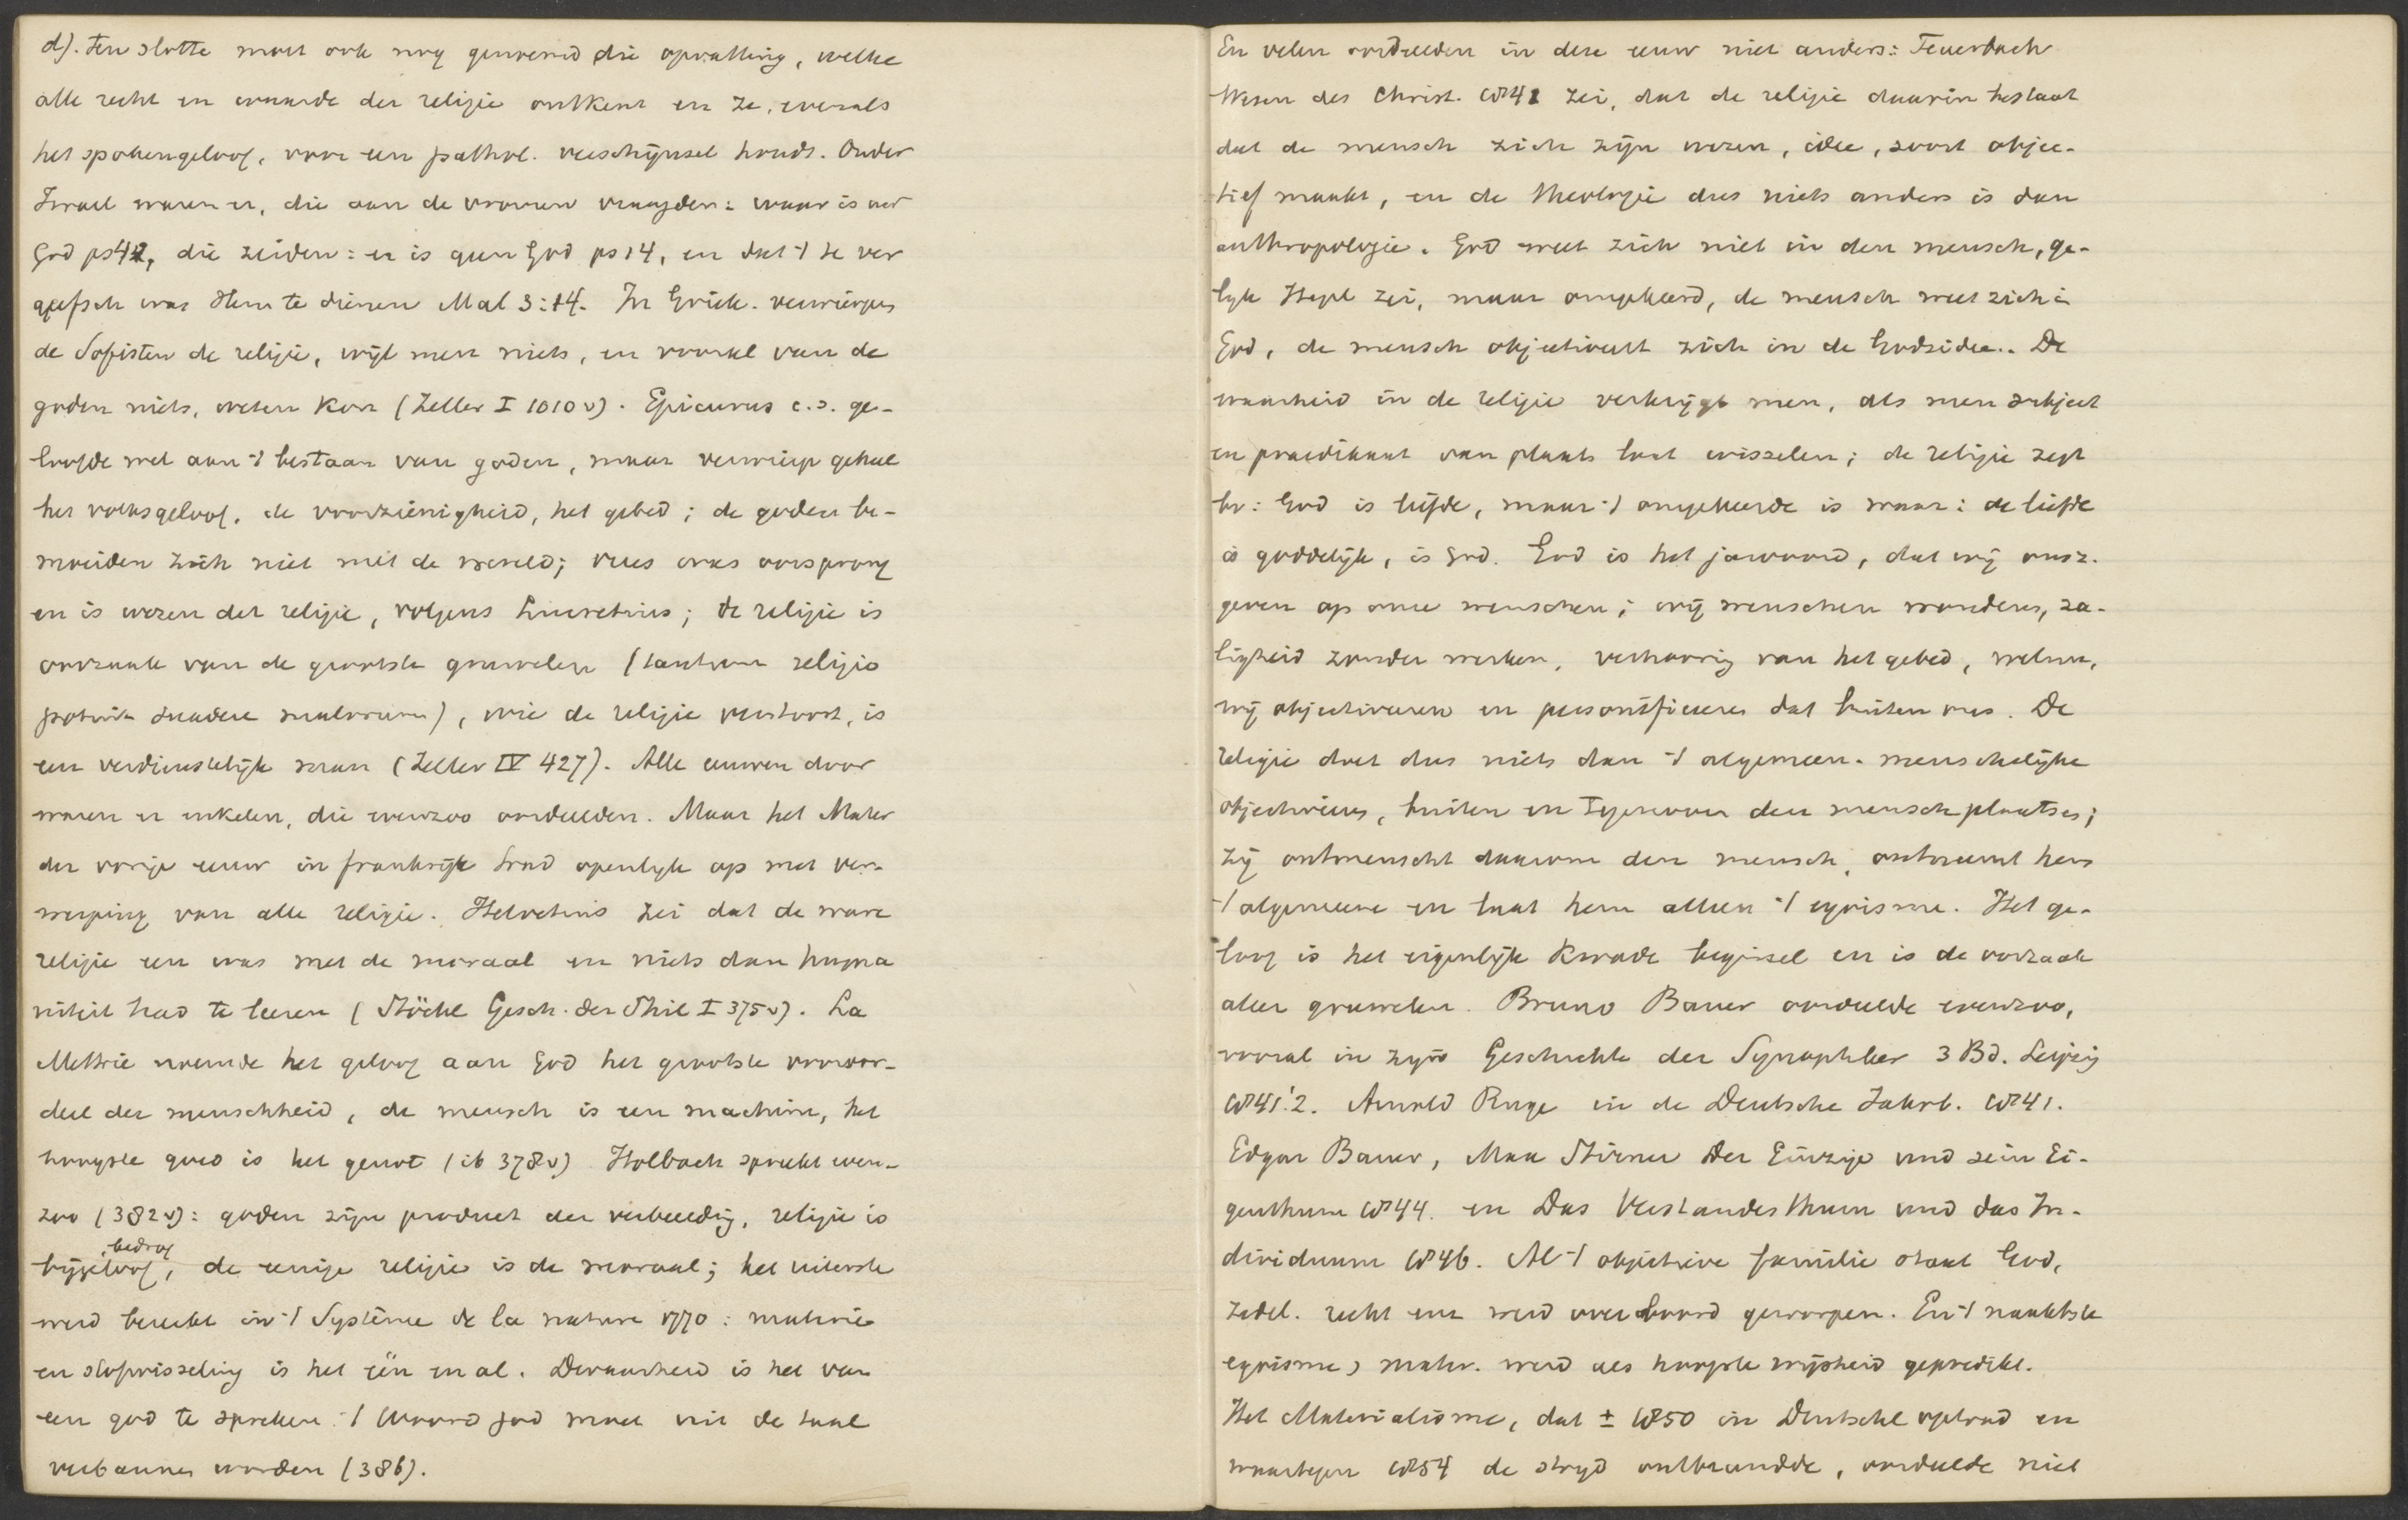 d). Ten slotte moet ook nog genoemd die opvatting, welke
alle recht en waarde der religie ontkent en ze, evenals
het spokengeloof, voor een pathol. verschijnsel houdt. Onder
Israel waren er, die aan de vromen vraagden: waar is uw
God ps 42, die zeiden: er is geen God ps 14, en dat 't te ver
geefsch was Hem te dienen Mal 3:14. In Griek. verwierpen
de Sofisten de religie, wijl men niets, en vooral van de
goden niets, weten kon (Zeller I 1010 v). Epicurus c.s. ge-
loofde wel aan 't bestaan van goden, maar verwierp geheel
het volksgeloof, de voorzienigheid, het gebed; de goden be-
moeiden zich niet met de wereld; vrees was oorsprong
en is wezen der religie, volgens Lucretius; de religie is
oorzaak van de grootste gruwelen (tantum religio
potuit suadere malorum), wie de religie verstoort, is
een verdienstelijk man (Zeller IV 427). Alle eeuwen door
waren er enkelen, die evenzoo oordeelden. Maar het Mater
der vorige eeuw in frankrijk trad openlijk op met ver-
werping van alle religie. Helvetius zei dat de ware
religie een was met de moraal en niets dan huma
niteit had te leeren (Stöckl Gesch. der Phil I 375 v). La
Mettrie noemde het geloof aan God het grootste vooroor-
deel der menschheid, de mensch is een machine, het
hoogste goed is het genot (ib 378 v) Holbach spreekt even-
zoo (382 v): goden zijn product der verbeelding, religie is
bijgeloof, bedrog, de eenige religie is de moraal; het uiterste
werd bereikt in 't Système de la nature 1770: materie
en stofwisseling is het één en al. Dwaasheid is het van
een god te spreken. 't Woord god moet uit de taal
verbannen worden (386).
En velen oordeelden in deze eeuw niet anders: Feuerbach
Wesen des Christ. 1841 zei, dat de religie daarin bestaat
dat de mensch zich zijn wezen, idee, soort objec-
tief maakt, en de theologie dus niets anders is dan
anthropologie. God weet zich niet in den mensch, ge-
lijk Hegel zei, maar omgekeerd, de mensch weet zich in
God, de mensch objectiveert zich in de Godsidee. De
waarheid in de religie verkrijgt men, als men subject
en praedikaat van plaats laat wisselen; de religie zegt
bv: God is liefde, maar 't omgekeerde is waar: de liefde
is goddelijk, is God. God is het jawoord, dat wij onsz.
geven op onze wenschen; wij wenschen wonderen, za-
ligheid zonder werken, verhooring van het gebed,
wij objectiveeren en personifieeren dat buiten ons. De
religie doet dus niets dan 't algemeen-menschelijke
objectiveeren, buiten en tegenover den mensch plaatsen;
zij ontmenscht daarom den mensch, ontneemt hem
't algemeene en laat hem alleen 't egoisme. Het ge-
loof is het eigenlijk kwade beginsel en is de oorzaak
aller gruwelen. Bruno Bauer oordeelde evenzoo,
vooral in zijn Geschichte der Synoptiker 3 Bd. Leipzig
1841.'2. Arnold Ruge in de Deutsche Jahrb. 1841.
Edgar Bauer, Max Stirner Der Einzige und sein Ei-
genthum 1844. en Das Verstandesthum und das In-
dividuum 1846. Al 't objectieve familie staat God,
zedel. recht enz werd over boord geworpen. En 't naaktste
egoisme, mater. werd als hoogste wijsheid gepredikt.
Het Materialisme, dat ± 1850 in Duitschl optrad en
waartegen 1854 de strijd ontbrandde, oordeelde niet